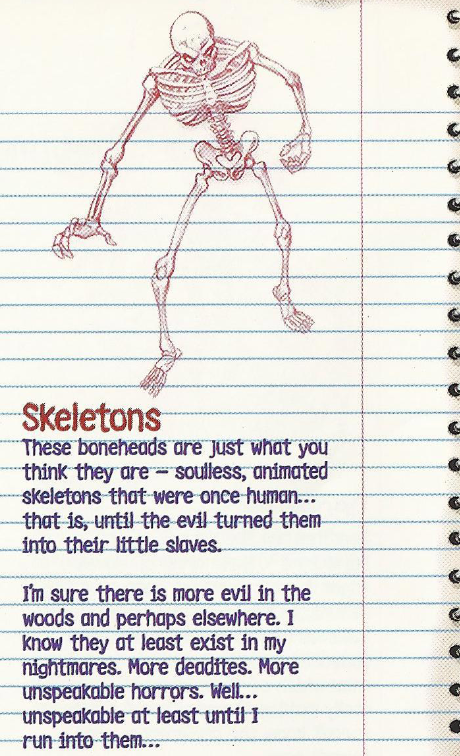 Skeletons
These boneheads are just what you
think they are – soulless, animated
skeletons that were once human...
that is, until the evil turned them
into their little slaves.
I'm sure there is more evil in the
woods and perhaps elsewhere. I
know they at least exist in my
nightmares. More deadites. More
unspeakable horrors. Well...
unspeakable at least until I
run into them...